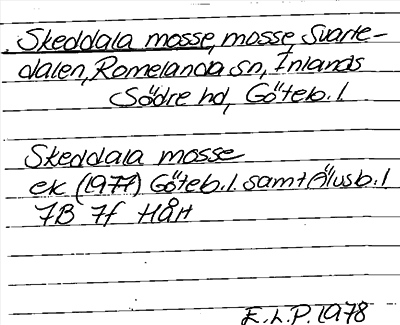 Skeddala mosse, mosse, Svarte-
dalen, Romelanda sn, Inlands
Södre hd, Göteb. l.
Skeddala mosse
ek (1977) Göteb. l. samt Älvsb. l
7B 7f Hårt
E. L. P. 1978